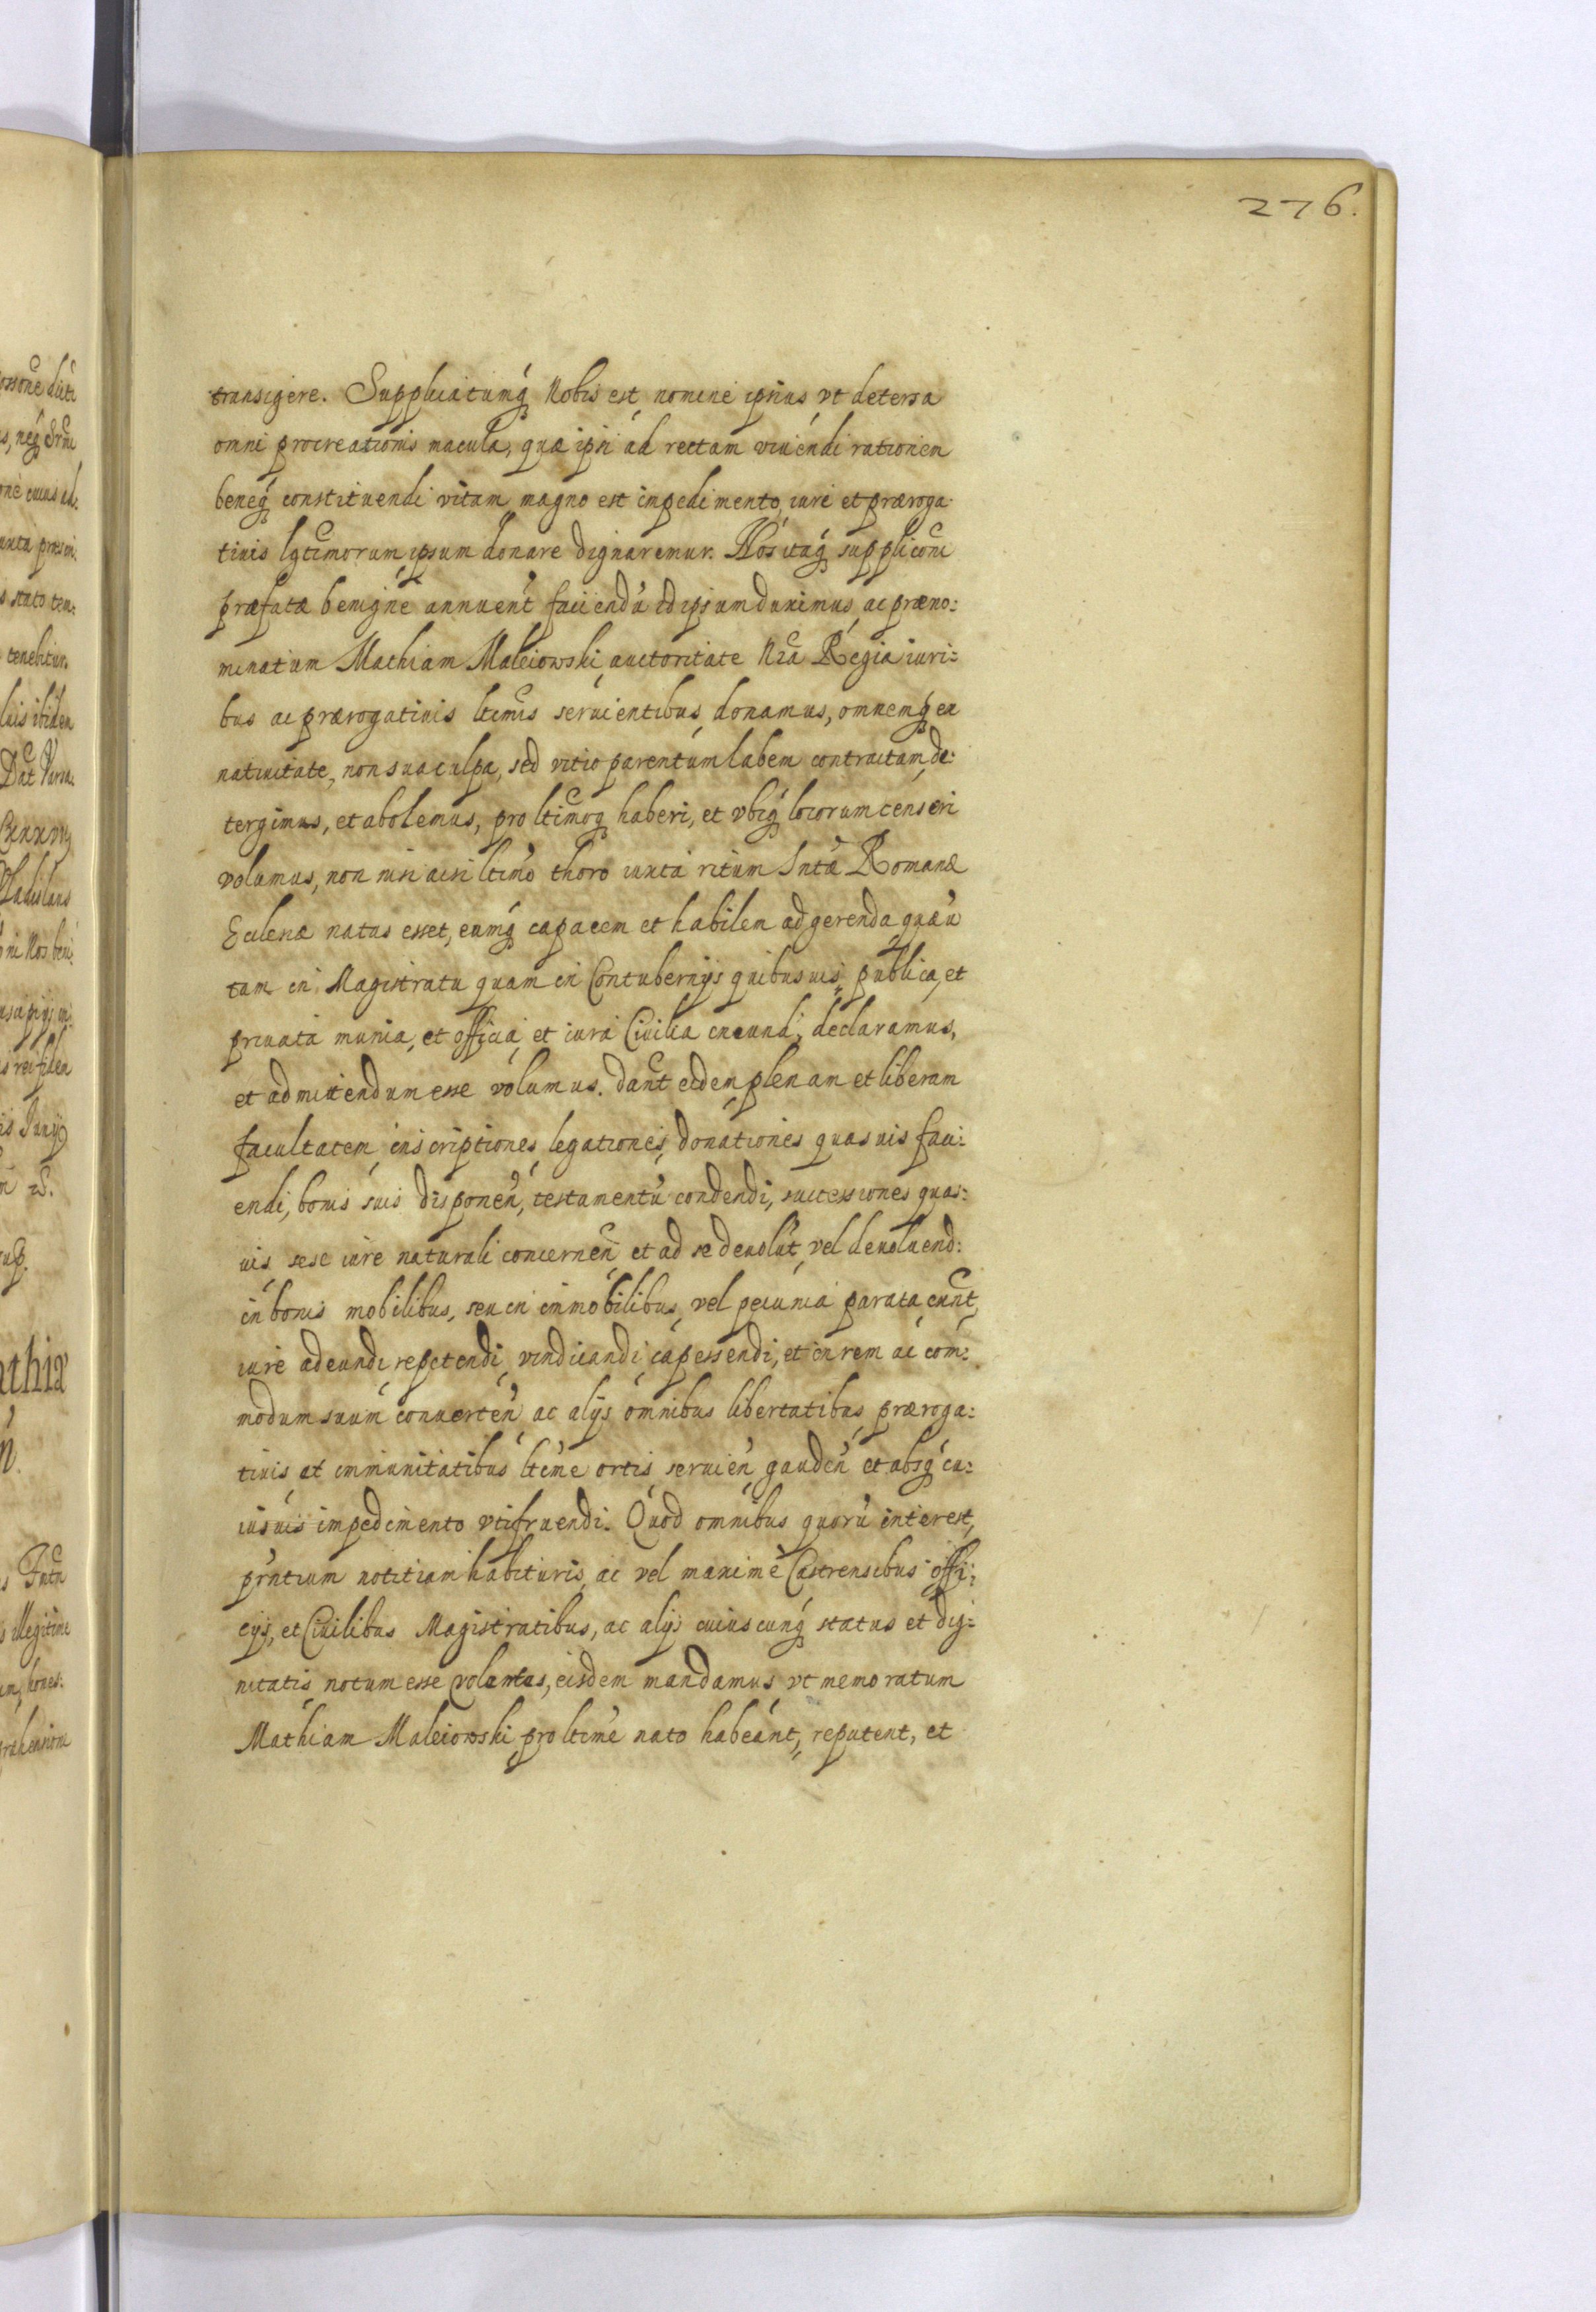 276.
transigere. Supplicatumq́ Nobis est nomine ipsius vt detersa
omni procreationis macula, quæ ipsi ad rectam viuendi rationem
beneq́ constituendi vitam magno est impedimento, iure et præroga-
tiuis lgtimorum ipsum donare dignaremur. Nos itaq́ supplicõni
præfatæ benigne annuen̉t faciendũ id ipsum duximus, ac præno:
minatum Mathiam Maleiowski auctoritate Nrã Regia iuri:
bus ac prærogatiuis ltimis seruientibus donamus, omnemq́ ex
natiuitate, non sua culpa, sed vitio parentum labem contractam de:
tergimus, et abolemus, pro ltimoq́ haberi, et vbiq́ locorum censeri
volumus, non nisi ac si ltimo thoro iuxta ritum Sntæ Romanæ
Eclesiæ natus esset, eumq́ capacem et habilem ad gerenda quæủ
tam in Magistratu quam in Contubernijs quibusuis, publica, et
priuata munia, et officia, et iura Ciuilia ineundi, declaramus,
et admittendum esse volumus. Dan̉t eidem plenam et liberam
facultatem inscriptiones, legationes, donationes quasuis faci:
endi, bonis suis disponen̉, testamentũ condendi, successiones quas:
uis sese iure naturali concernen̉, et ad se deuolut, vel deuoluend:
in bonis mobilibus, seu in immobilibus, vel pecunia parata, eun̉t,
iure adeundi, repetendi, vindicandi, capessendi, et in rem ac com:
modum suum conuerten̉ ac alijs omnibus libertatibus, præroga:
tiuis, at immunitatibus ltime ortis, seruien̉ gauden̉ et absq́ cu:
iusuis impedimento vtifruendi. Quod omnibus quorũ interest,
pr̃ntium notitiam habituris, ac vel maxime Castrensibus offi:
cijs, et Ciuilibus Magistratibus, ac alijs cuiuscunq́ status et dig:
nitatis notum esse volentes, eisdem mandamus vt memoratum
Mathiam Maleiowski pro ltime nato habeant, reputent, et